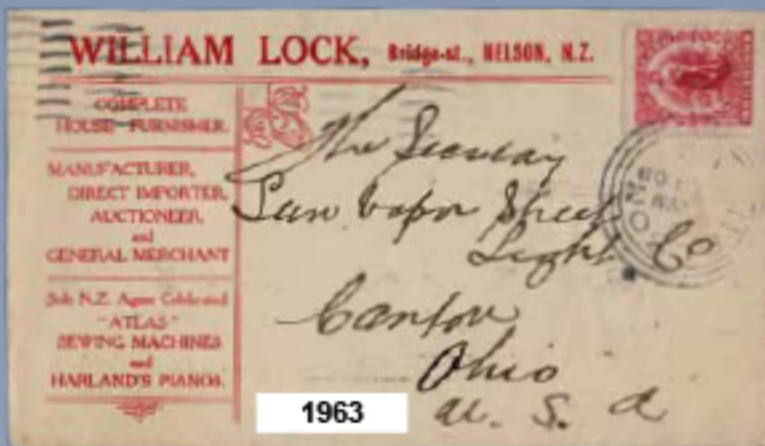 WILLIAM LOCK, Bridge-st., NELSON, N.Z.
COMPLETE
HOUSE FURNISHER.
MANUFACTURER,
DIRECT IMPORTER,
AUCTIONEER,
and
GENERAL MERCHANT
Sole N.Z. Agent Celebrated
"ATLAS"
SEWING MACHINES
and
HARLAND'S PIANOS.
The Secretary
Sun Vapor Street
Light Co
Canton
Ohio
U. S. A
1963